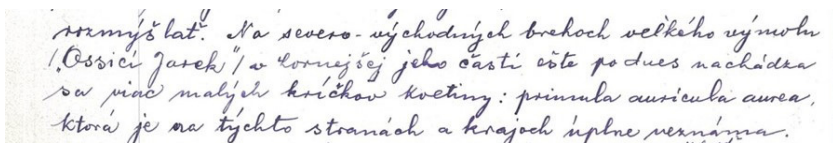 rozmýšlať. Na severo-východných brehoch veľkého výmolu
/"Ossici Jarek"/ v hornejšej jeho časti ešte po dnes nachádza
sa viac malých kríčkov kvetiny: primula auricula aurea,
ktorá je na týchto stranách a krajoch úplne neznáma.